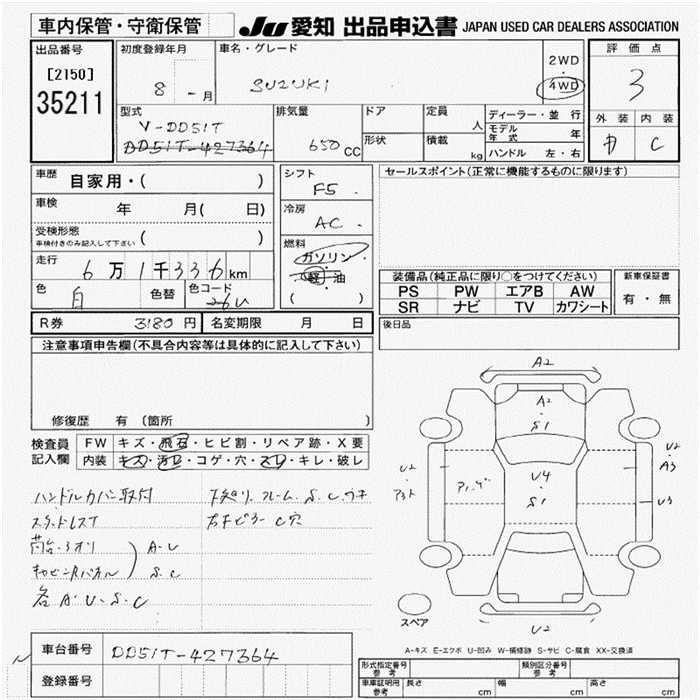 車内保管・守衛保管 JU 愛知 出品申込書 JAPAN USED CAR DEALERS ASSOCIATION
出品番号 初度登録年月 車名・グレード 評価点
[2150] 8 - 月 SUZUKI 2WD ・ 4WD 3
35211
型式 排気量 ドア 定員 人 ディーラー・並行 外装 内装
V-DD51T 650 CC 形状 積載 kg モデル年式 年 C
DD51T-427364 ハンドル 左・右
車歴 自家用・( ) シフト F5 セールスポイント(正常に機能するものに限ります)
車検 年 月( 日) 冷房 AC
受検形態 車検付きのみ記入して下さい ( ) 燃料 ガソリン
走行 6万1千336km 軽油 装備品(純正品に限り○をつけてください) 新車保証書
色 白 色替 色コード 26U ( ) PS PW エアB AW 有・無
SR ナビ TV カワシート
R券 3180円 名変期限 月 日 後日品
注意事項申告欄(不具合内容等は具体的に記入して下さい)
修復歴 有 (箇所 )
検査員記入欄 FW キズ・飛石・ヒビ割・リペア跡・X要
内装 キズ・汚れ・コゲ・穴・スレ・キレ・破レ
A2
A2
S1
U2
U2
A3
U4
S1
U3
ハンドルカバー取付
A・U
S.C
各A・U・S・C
スペア
U2
A-キズ E-エクボ U-凹み W-補修跡 S-サビ C-腐食 XX-交換済
車台番号 DD51T-427364
登録番号
形式指定番号 参考 類別区分番号 参考
車庫証明用 参考 長さ cm 幅 cm 高さ cm